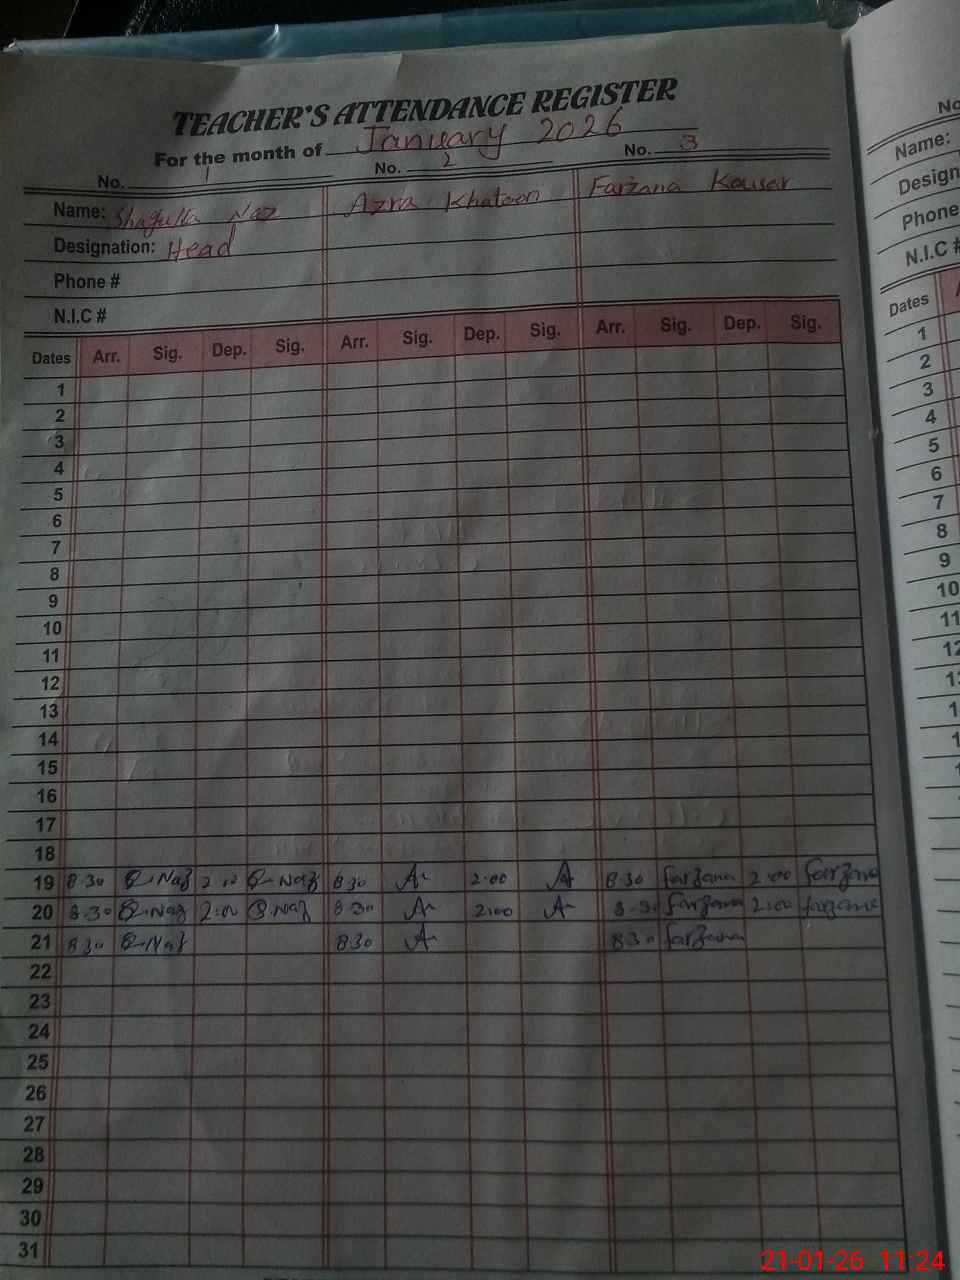 TEACHER'S ATTENDANCE REGISTER
For the month of January 2026
No. 1 No. 2 No. 3
Name: Shagufta Naz Azra Khatoon Farzana Kousar
Designation: Head
Phone #
N.I.C #
Dates Arr. Sig. Dep. Sig. Arr. Sig. Dep. Sig. Arr. Sig. Dep. Sig.
1
2
3
4
5
6
7
8
9
10
11
12
13
14
15
16
17
18
19 8:30 S.Naz 2:00 S.Naz 8:30 A 2:00 A 8:30 Farzana 2:00 Farzana
20 8:30 S.Naz 2:00 S.Naz 8:30 A 2:00 A 8:30 Farzana 2:00 Farzana
21 8:30 S.Naz 8:30 A 8:30 Farzana
22
23
24
25
26
27
28
29
30
31
No
Name:
Design
Phone
N.I.C #
Dates
1
2
3
4
5
6
7
8
9
10
11
12
21-01-26 11:24